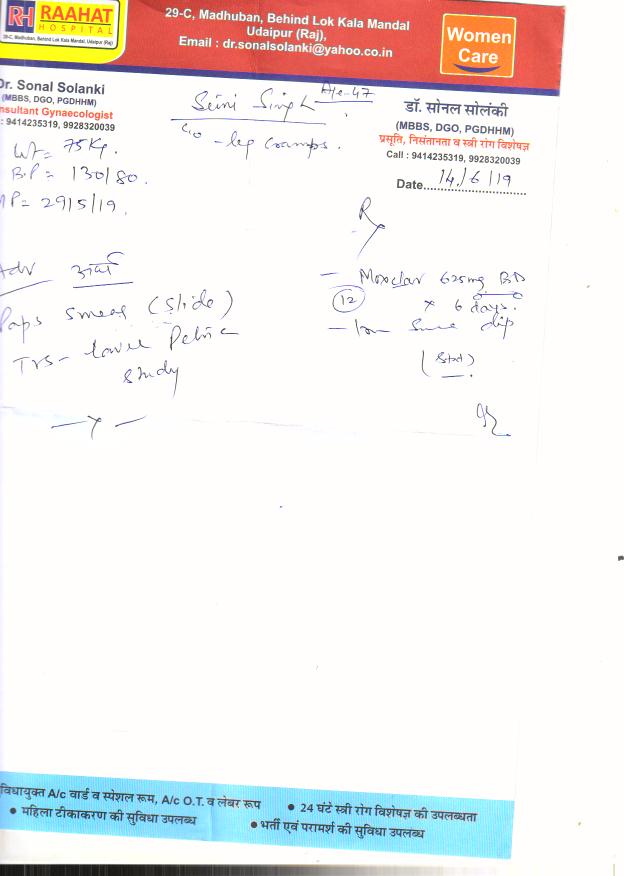 RH RAAHAT
HOSPITAL
29-C, Madhuban, Behind Lok Kala Mandal, Udaipur (Raj)
29-C, Madhuban, Behind Lok Kala Mandal
Udaipur (Raj),
Email : dr.sonalsolanki@yahoo.co.in
Women
Care
Dr. Sonal Solanki
(MBBS, DGO, PGDHHM)
nsultant Gynaecologist
: 9414235319, 9928320039
Singh
47
c/o - leg cramps.
डॉ. सोनल सोलंकी
(MBBS, DGO, PGDHHM)
प्रसूति, निसंतानता व स्त्री रोग विशेषज्ञ
Call : 9414235319, 9928320039
Date 14/6/19
Wt = 75 Kg.
B.P = 130/80.
MP = 29/5/19.
Rx
Adv
Paps Smear (Slide)
TVS - Lower Pelvic
Study
- x -
- Moxclav 625mg BD
(12) x 6 days.
(Stat)
विधायुक्त A/c वार्ड व स्पेशल रूम, A/c O.T. व लेबर रूप
• 24 घंटे स्त्री रोग विशेषज्ञ की उपलब्धता
• महिला टीकाकरण की सुविधा उपलब्ध
• भर्ती एवं परामर्श की सुविधा उपलब्ध